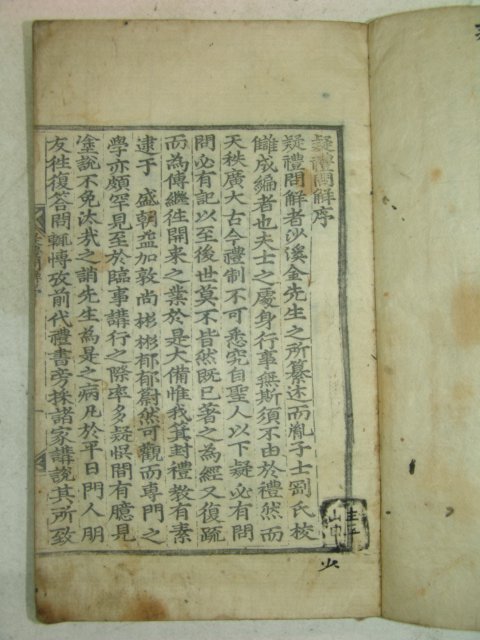 疑禮問解序
疑禮問解者沙溪金先生之所纂述而胤子士剛氏校
讎成編者也夫士之處身行事無斯須不由於禮然而
天秩廣大古今禮制不可悉究自聖人以下疑必有問
問必有記以至後世莫不皆然旣已著之為經又復疏
而為傳繼徃開來之業於是大備惟我箕封禮敎有素
逮于 盛朝益加敦尚彬彬郁郁蔚然可觀而專門之
學亦頗罕見至於臨事講行之際率多疑悮間有臆見
說不免汰㢤之誚先生為是之病凡於平日門人朋
友徃復答問輒愽攷前代禮書旁採諸家講說其所致